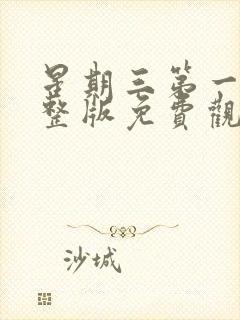 星期三第一
整版免費觀
沙城